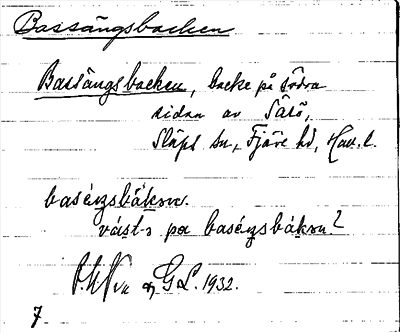 Bassängsbacken
Bassängsbacken, backe på södra
sidan av Särö,
Släps sn, Fjäre hd, Hall. l.
baséŋsbákən.
vást-ɔ pa baséŋsbákən?
G L. 1932.
7